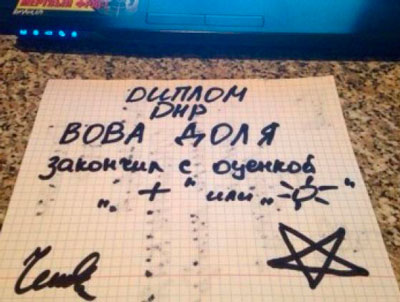 ДИПЛОМ
DHP
ВОВА ДОЛЯ
закончил с оценкой
„ + “ или „ “